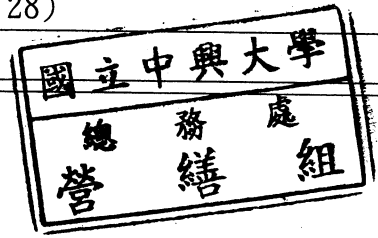 28)
國立中興大學
總務處
營繕組